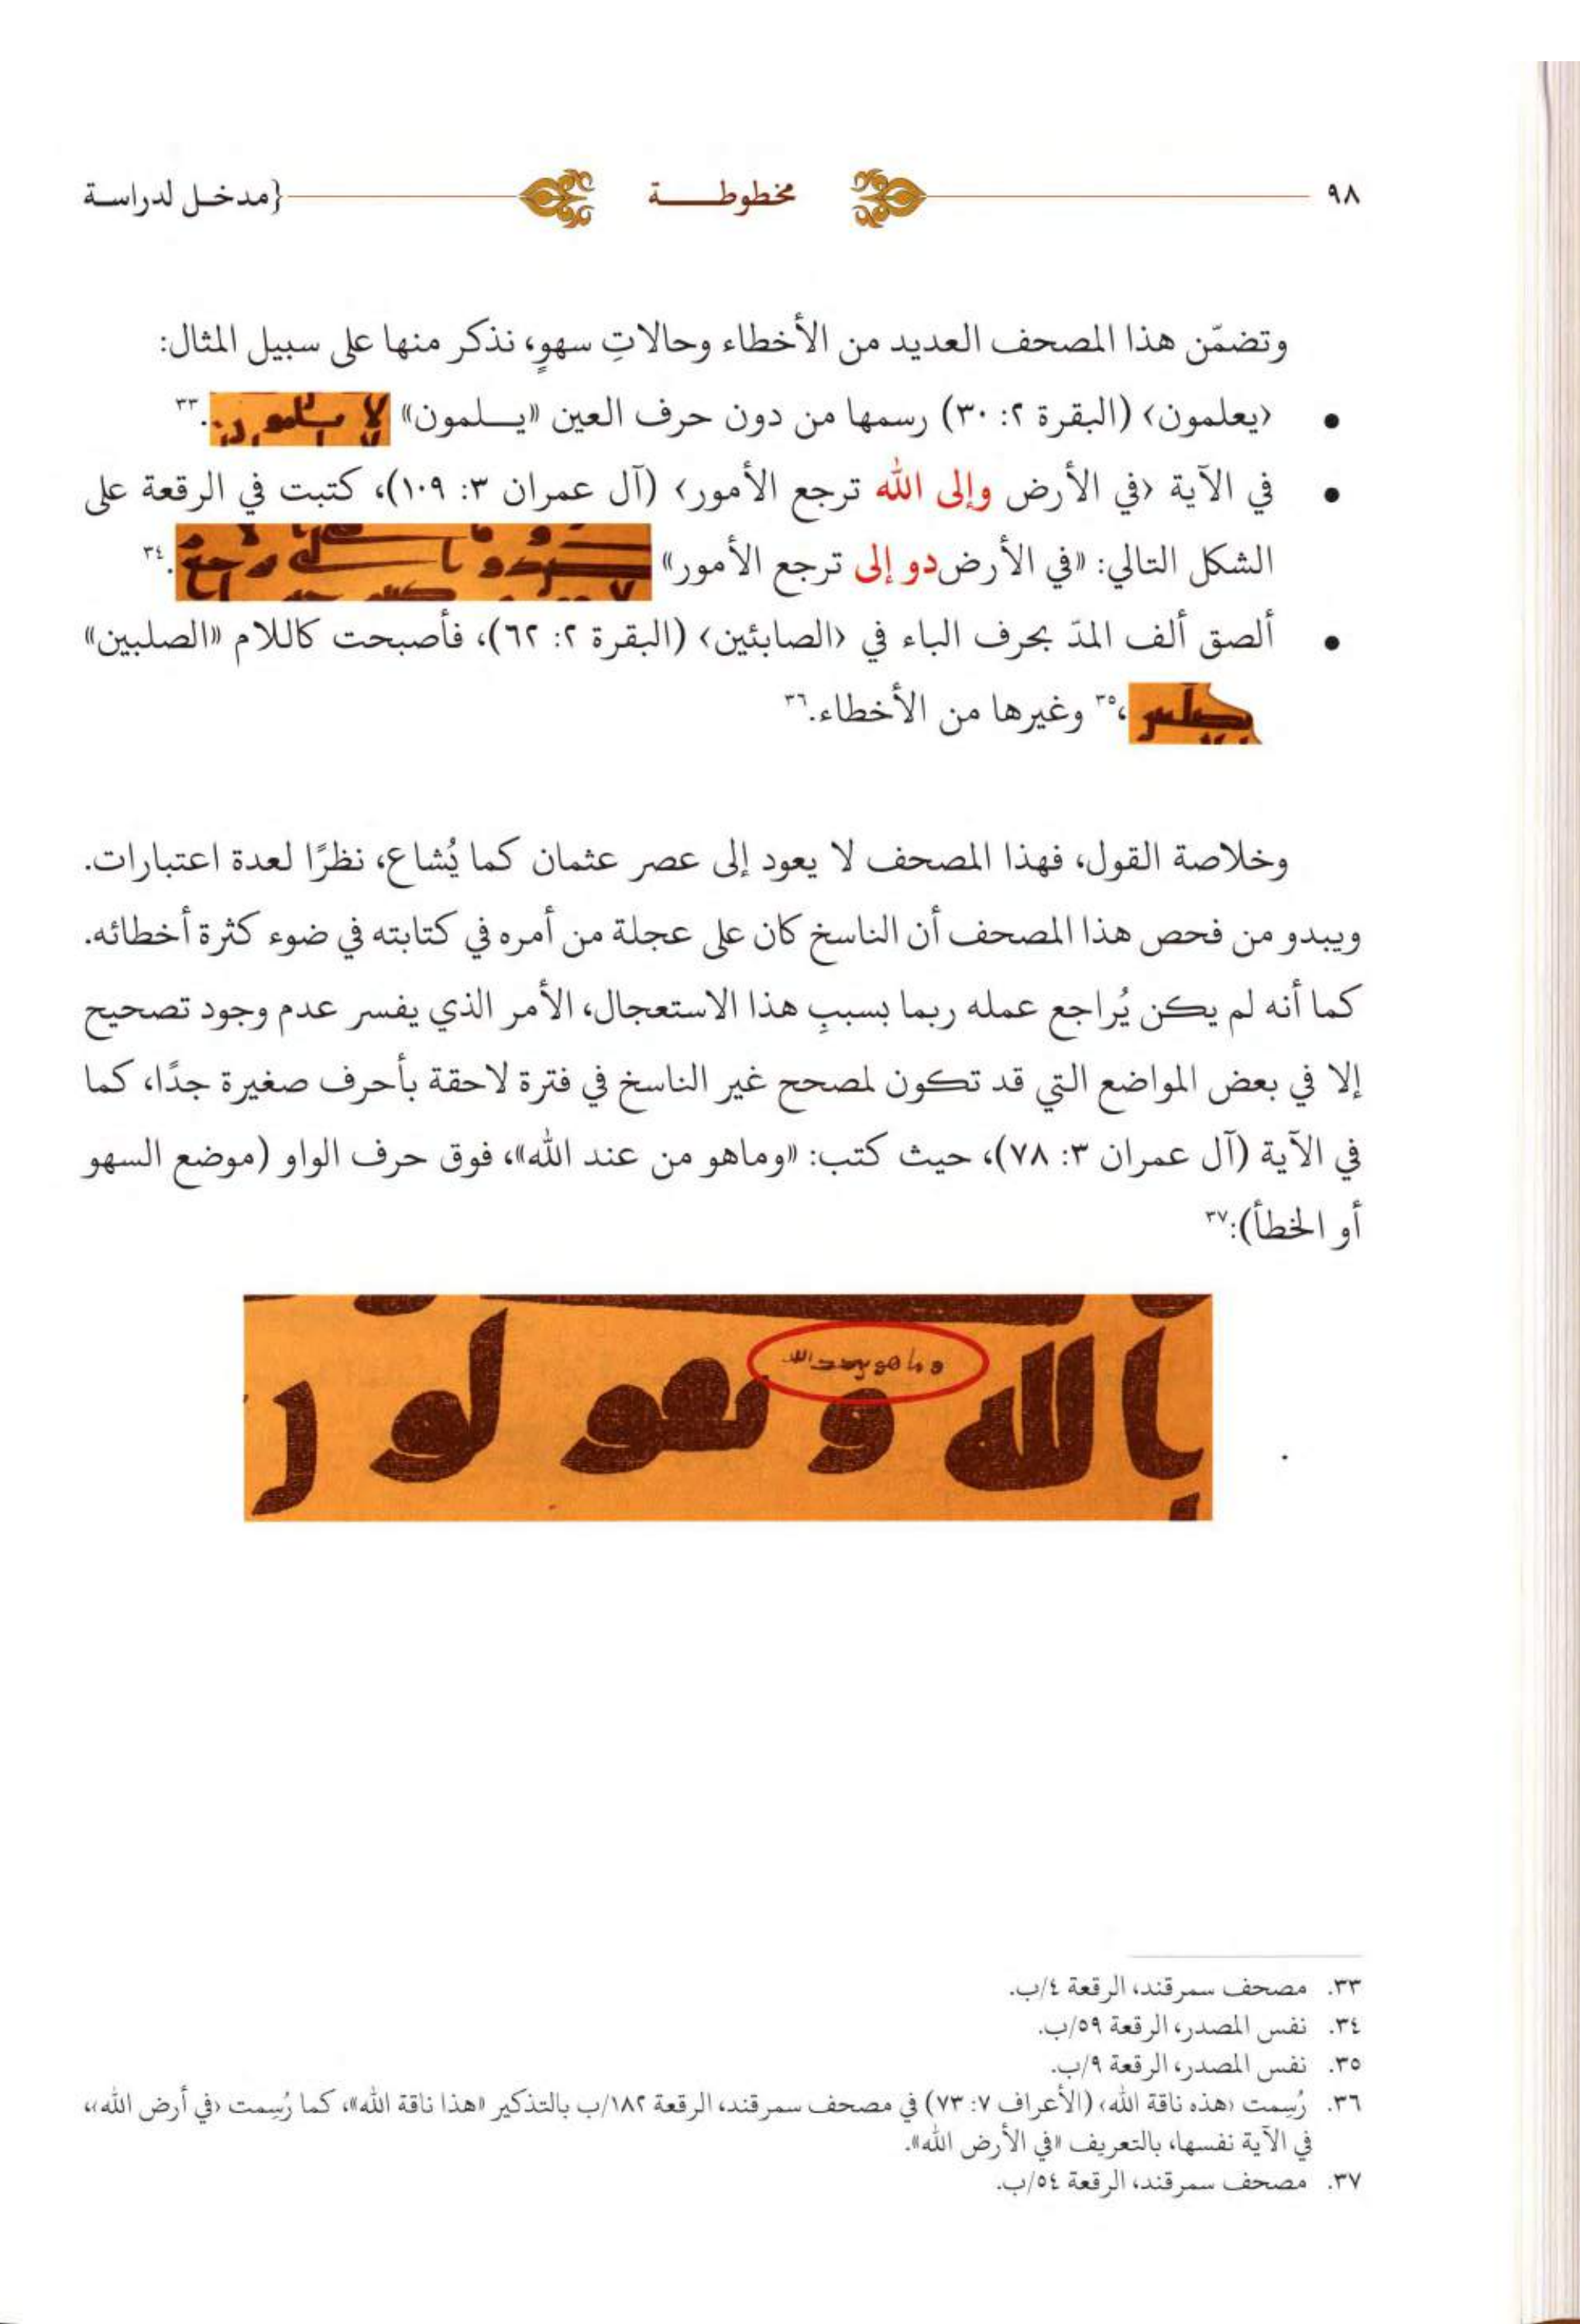 ٩٨ مخطوطـــــة {مدخـل لدراسـة
وتضمّن هذا المصحف العديد من الأخطاء وحالاتِ سهوٍ، نذكر منها على سبيل المثال:
• ‹يعلمون› (البقرة ٢: ٣٠) رسمها من دون حرف العين «يـــلمون» .٣٣
• في الآية ‹في الأرض وإلى الله ترجع الأمور› (آل عمران ٣: ١٠٩)، كتبت في الرقعة على
الشكل التالي: «في الأرض دو إلى ترجع الأمور» .٣٤
• ألصق ألف المدّ بحرف الباء في ‹الصابئين› (البقرة ٢: ٦٢)، فأصبحت كاللام «الصلبين»
،٣٥ وغيرها من الأخطاء.٣٦
وخلاصة القول، فهذا المصحف لا يعود إلى عصر عثمان كما يُشاع، نظرًا لعدة اعتبارات.
ويبدو من فحص هذا المصحف أن الناسخ كان على عجلة من أمره في كتابته في ضوء كثرة أخطائه.
كما أنه لم يكن يُراجع عمله ربما بسببِ هذا الاستعجال، الأمر الذي يفسر عدم وجود تصحيح
إلا في بعض المواضع التي قد تكون لمصحح غير الناسخ في فترة لاحقة بأحرف صغيرة جدًا، كما
في الآية (آل عمران ٣: ٧٨)، حيث كتب: «وماهو من عند الله»، فوق حرف الواو (موضع السهو
أو الخطأ):٣٧
وما هو من عند الله
بالله و یعو لور
٣٣. مصحف سمرقند، الرقعة ٤/ب.
٣٤. نفس المصدر، الرقعة ٥٩/ب.
٣٥. نفس المصدر، الرقعة ٩/ب.
٣٦. رُسِمت ‹هذه ناقة الله› (الأعراف ٧: ٧٣) في مصحف سمرقند، الرقعة ١٨٢/ب بالتذكير «هذا ناقة الله»، كما رُسِمت ‹في أرض الله›،
في الآية نفسها، بالتعريف «في الأرض الله».
٣٧. مصحف سمرقند، الرقعة ٥٤/ب.